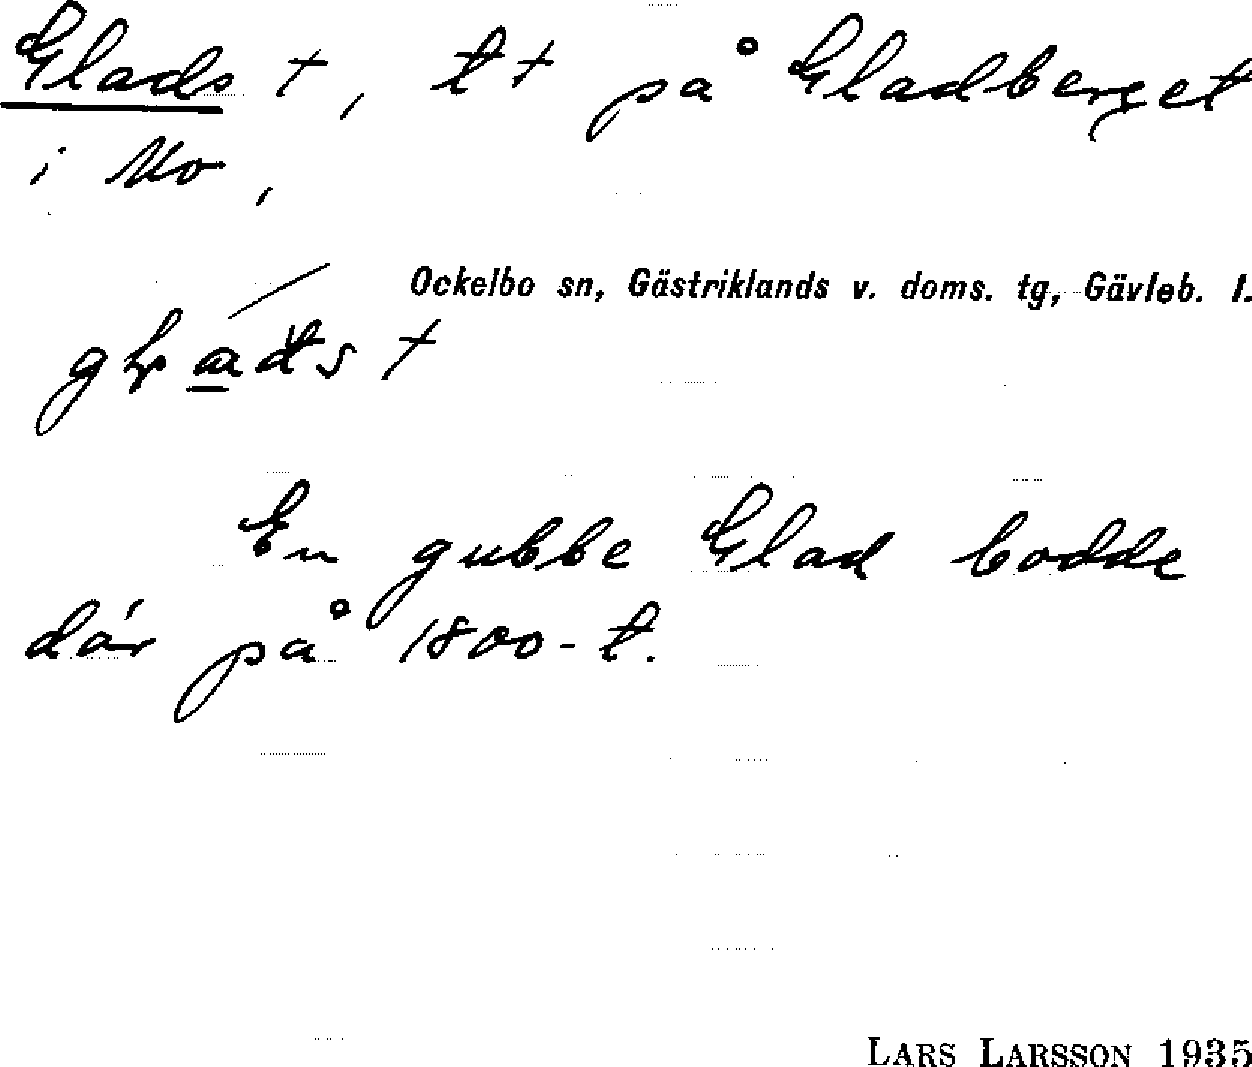 Glads †, t † på Gladberget
i Mo,
Ockelbo sn, Gästriklands v. doms. tg, Gävleb. l.
En gubbe Glad bodde
där på 1800-t.
LARS LARSSON 1935